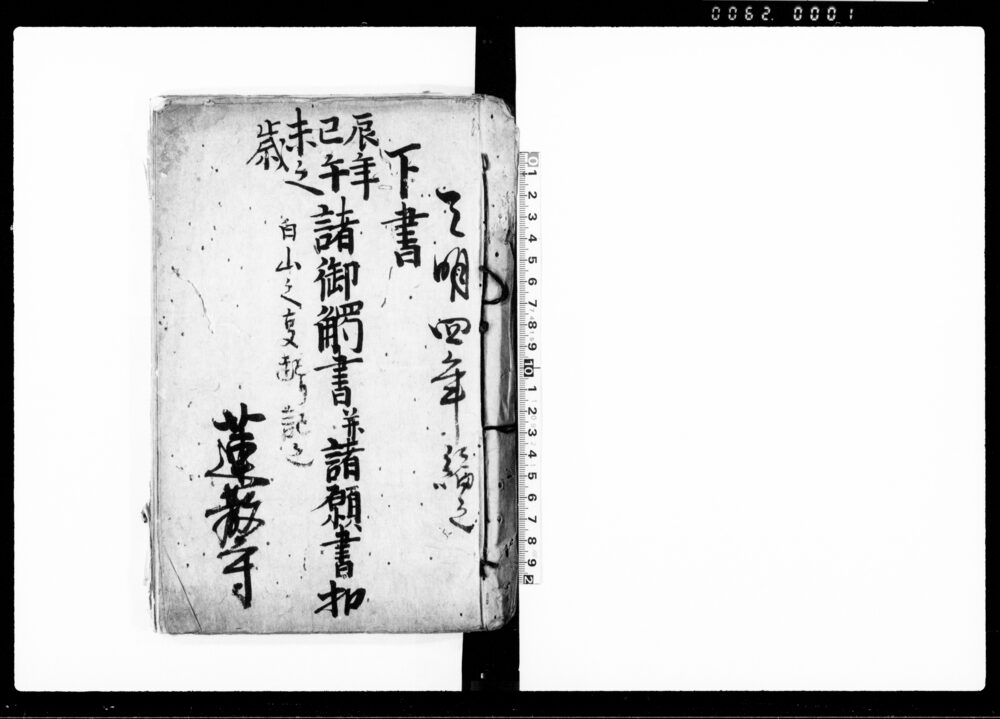 0062. 0001
天明四年編之
下書
辰年
巳午
未之
歳
諸御觸書并諸願書扣
白山之
記之
蓮教寺
0 1 2 3 4 5 6 7 8 9 10 1 2 3 4 5 6 7 8 9 2